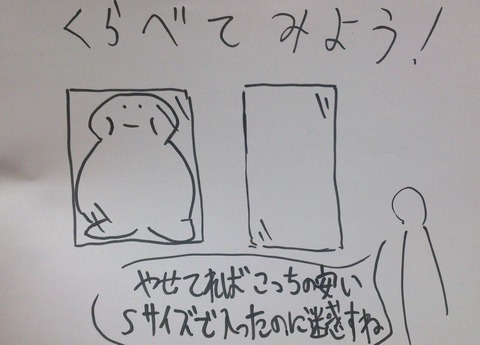 くらべてみよう!
やせてればこっちの安い
Sサイズで入ったのに迷惑すね